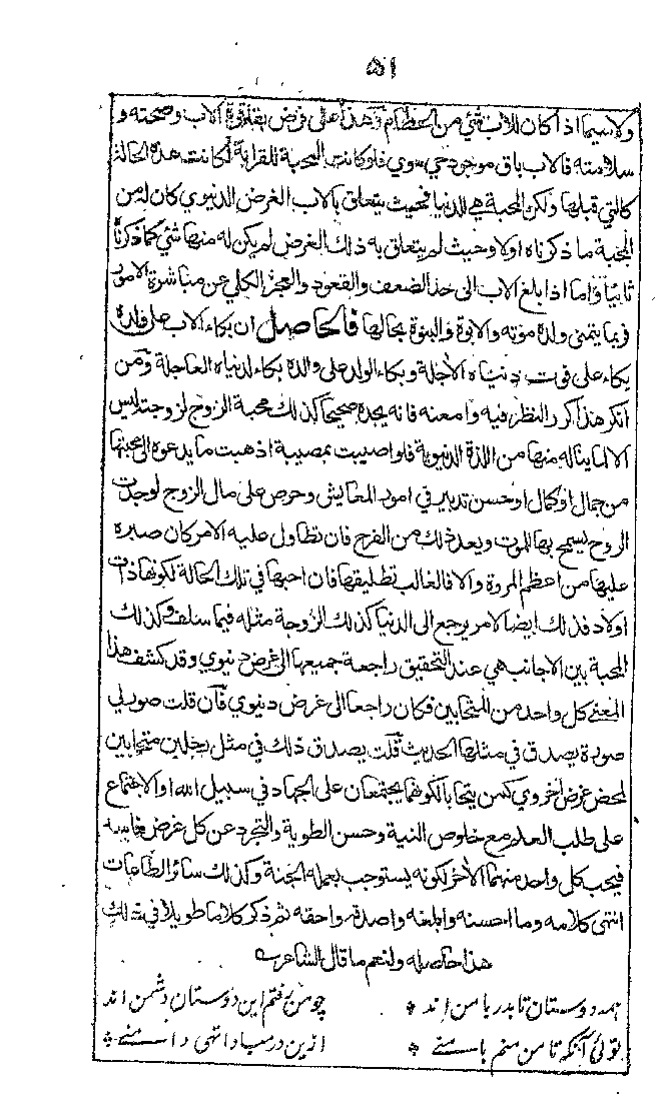 ۵۱
ولاسيما اذا كان للاب شئ من الحطام وهذا على فرض بقاء قوة الاب وصحته و
سلامته فالاب باق موجود حي سوي فلو كانت المحبة للقرابة لكانت هذه الحالة
كالتي قبلها ولكن المحبة هي للدنيا فحيث يتعلق بالاب الغرض الدنيوي كان له من
المحبة ما ذكرناه اولا وحيث لم يتعلق به ذلك الغرض لم يكن له منها شئ كما ذكرنا
ثانيا واما اذا بلغ الاب الى حد الضعف والقعود والعجز الكلي عن مباشرة الامور
فربما يتمنى ولده موته والابوة والبنوة بحالها فالحاصل ان بكاء الاب على ولده
بكاء على فوت دنياه الآجلة وبكاء الولد على والده بكاء لدنياه العاجلة ومن
انكر هذا كرر النظر فيه وامعنه فانه يجده صحيحا كذلك محبة الزوج لزوجته ليس
الا لما يناله منها من اللذة الدنيوية فلو اصيبت بمصيبة اذهبت ما يدعوه الى محبتها
من جمال او كمال او حسن تدبير في امور المعايش وحرص على مال الزوج لوجدت
الزوج يسمح بها للموت ويعد ذلك من الفرج فان تطاول عليه الامر كان صبره
عليها من اعظم المروة والا فالغالب تطليقها فان احبها في تلك الحالة لكونها ذات
اولاد فذلك ايضا لامر يرجع الى الدنيا كذلك الزوجة مثله فيما سلف وكذلك
المحبة بين الاجانب هي عند التحقيق راجعة جميعها الى غرض دنيوي وقد كشف هذا
المعنى كل واحد من المتحابين فكان راجعا الى غرض دنيوي فان قلت صور لي
صورة يصدق في مثلها الحديث قلت يصدق ذلك في مثل رجلين متحابين
لمحض غرض اخروي كمن يتحابا لكونهما يجتمعان على الجهاد في سبيل الله او الاجتماع
على طلب العلم مع خلوص النية وحسن الطوية والتجرد عن كل غرض
فيحب كل واحد منهما الآخر لكونه يستوجب بعمله الجنة وكذلك سائر الطاعات
انتهى كلامه وما احسنه وابلغه واصدقه واحقه ثم ذكر كلاما طويلا في ذلك
هذا حاصله ولنعم ما قال الشاعر
همه دوستان تا بدر با من اند * چو من رفتم این دوستان دشمن اند
توئی آنکه تا من منم با منی * ازین در مبادا تهی دامنی *